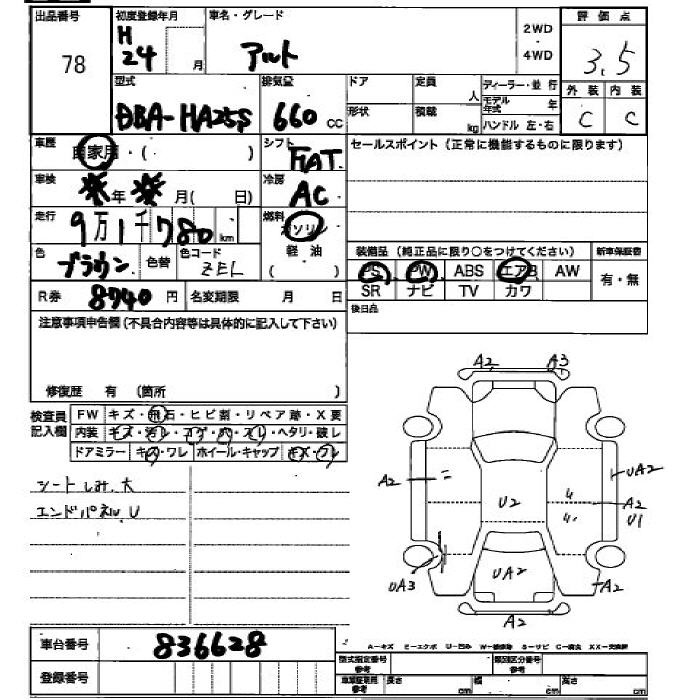 出品番号 初度登録年月 車名・グレード 2WD・4WD 評価点
78 H24 月 アルト 3.5
型式 排気量 ドア 定員 人 ディーラー・並行 外装 内装
DBA-HA25S 660 cc 形状 積載 kg モデル年式 年 C C
ハンドル 左・右
車歴 自家用・( ) シフト FIAT セールスポイント(正常に機能するものに限ります)
車検 年 月( 日) 冷房 AC
走行 9万1千780km 燃料 ガソリン
軽油
色 ブラウン 色替 色コード ZEL 装備品(純正品に限り○をつけてください) 新車保証書
PS PW ABS エアB AW 有・無
R券 8740円 名変期限 月 日 SR ナビ TV カワ
注意事項申告欄(不具合内容等は具体的に記入して下さい) 後日品
修復歴 有(箇所 )
検査員記入欄 FW キズ・飛石・ヒビ割・リペア跡・X要
内装 キズ・汚レ・コゲ・穴・スレ・ヘタリ・破レ
ドアミラー キズ・ワレ ホイール・キャップ キズ・ワレ
シートしみ.大
エンドパネル.U
A2 A3
A2 U2 UA2
A2
U1
UA3 UA2 A2
A2
車台番号 836628
A-キズ E-エクボ U-凹み S-サビ C-腐食 XX-交換済
登録番号 型式指定番号 参考 類別区分番号 参考
車庫証明用 参考 長さ cm 幅 cm 高さ cm